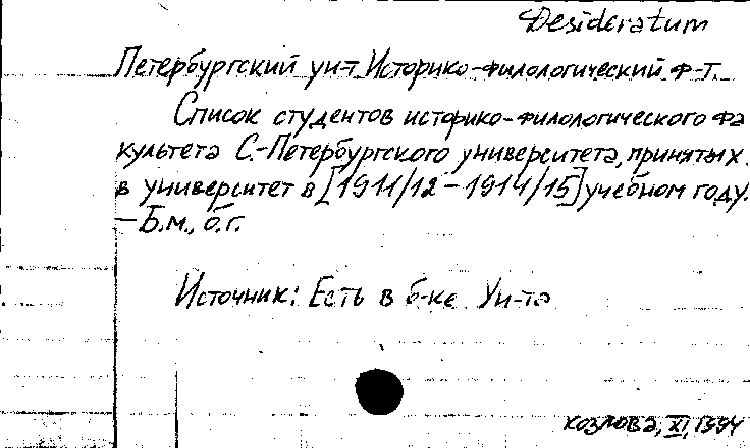 Desideratum
Петербургский ун-т Историко-филологический ф-т.
Список студентов историко-филологического фа
культета С.-Петербургского университета, принятых
в университет в [1911/12 - 1914/15] учебном году.
— Б.м., б.г.
Источник: Есть в б-ке Ун-та
Козлова, XI, 1994